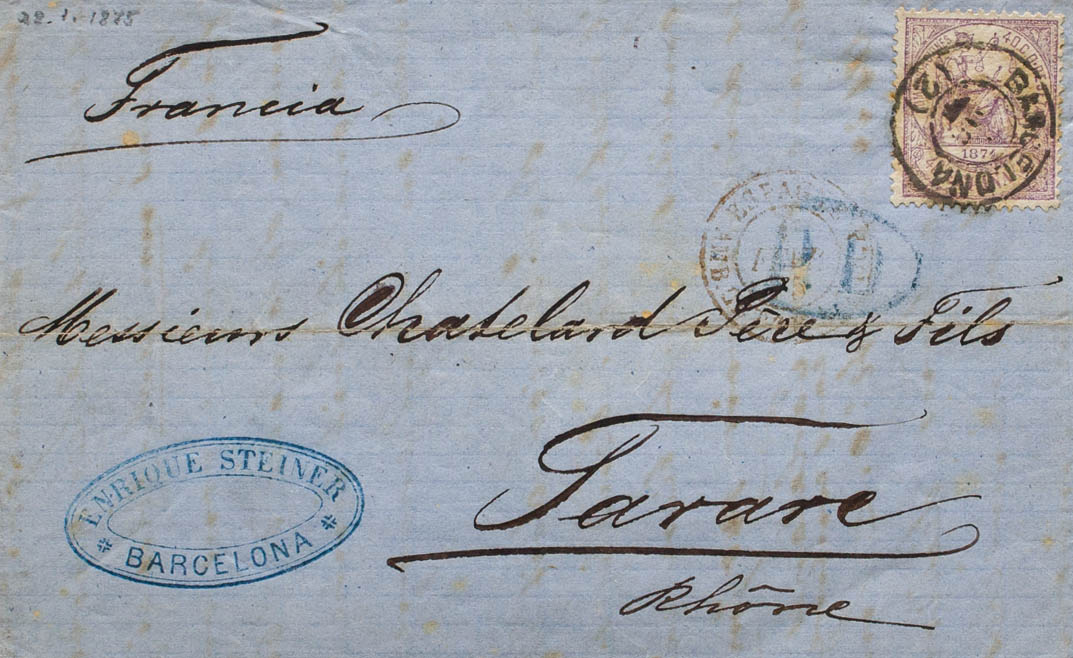 22.1.1875
Francia
40 CENT
1874
BARCELONA
ESPAGNE
PD
Messieurs Chatelard Père & Fils
Tarare
Rhône
ENRIQUE STEINER
BARCELONA